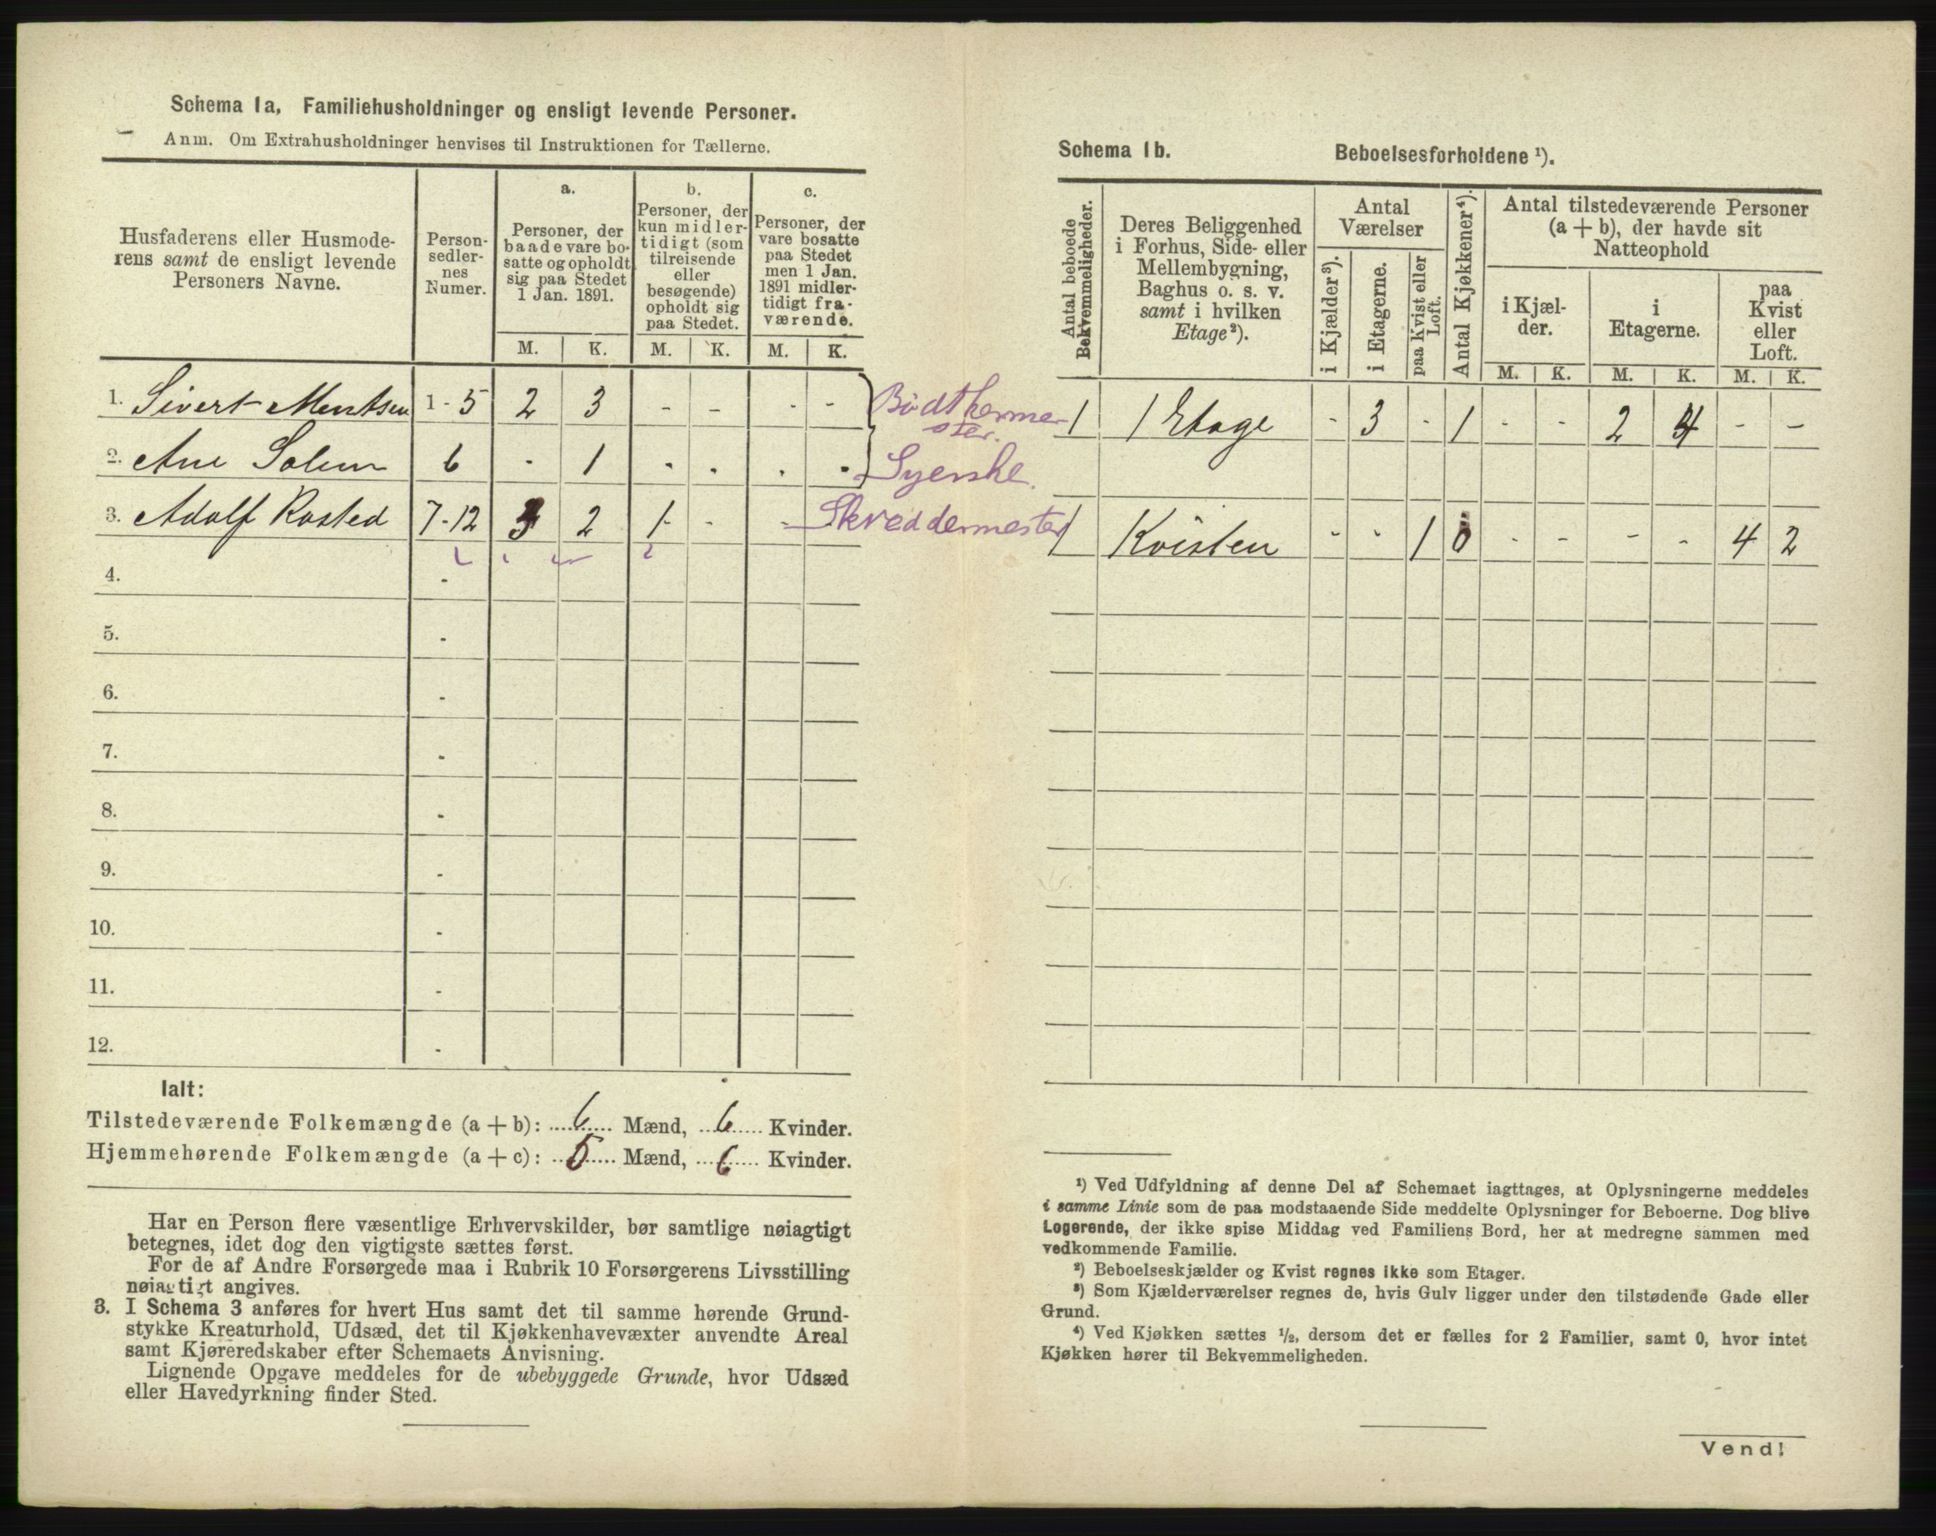 Schema 1a. Familiehusholdninger og ensligt levende Personer.
Anm. Om Extrahusholdninger henvises til Instruktionen for Tællerne.
Husfaderens eller Husmode-
rens samt de ensligt levende
Personers Navne.
Person-
sedler-
nes
Numer.
a.
Personer, der
baade vare bo-
satte og opholdt
sig paa Stedet
1 Jan. 1891.
b.
Personer, der
kun midler-
tidigt (som
tilreisende
eller
besøgende)
opholdt sig
paa Stedet.
c.
Personer, der
vare bosatte
paa Stedet
men 1 Jan.
1891 midler-
tidigt fra-
værende.
M. K. M. K. M. K.
1. Sivert Mentsen 1-5 2 3 - - - -
2. Ane Solem 6 - 1 - - - -
Syerske.
3. Adolf Rosted 7-12 3 2 1 - - Skreddermester
4. -
5. -
6. -
7. -
8. -
9. -
10. -
11. -
12. -
Ialt:
Tilstedeværende Folkemængde (a + b): 6 Mænd, 6 Kvinder.
Hjemmehørende Folkemængde (a + c): 5 Mænd, 6 Kvinder.
Har en Person flere væsentlige Erhvervskilder, bør samtlige nøiagtigt
betegnes, idet dog den vigtigste sættes først.
For de af Andre Forsørgede maa i Rubrik 10 Forsørgerens Livsstilling
nøiagtigt angives.
3. I Schema 3 anføres for hvert Hus samt det til samme hørende Grund-
stykke Kreaturhold, Udsæd, det til Kjøkkenhavevæxter anvendte Areal
samt Kjøreredskaber efter Schemaets Anvisning.
Lignende Opgave meddeles for de ubebyggede Grunde, hvor Udsæd
eller Havedyrkning finder Sted.
Schema 1b. Beboelsesforholdene ¹).
Antal beboede
Bekvemmeligheder.
Deres Beliggenhed
i Forhus, Side- eller
Mellembygning,
Baghus o. s. v.
samt i hvilken
Etage ²).
Antal
Værelser
i Kjælder ³).
i Etagerne.
paa Kvist eller
Loft.
Antal Kjøkkener ⁴).
Antal tilstedeværende Personer
(a + b), der havde sit
Natteophold
i Kjæl-
der.
i
Etagerne.
paa
Kvist
eller
Loft.
M. K. M. K. M. K.
1 1 Etage - 3 1 - - 2 4 - -
1 Kvisten - - 1 0 - - - - 4 2
¹) Ved Udfyldning af denne Del af Schemaet iagttages, at Oplysningerne meddeles
i samme Linie som de paa modstaaende Side meddelte Oplysninger for Beboerne. Dog blive
Logerende, der ikke spise Middag ved Familiens Bord, her at medregne sammen med
vedkommende Familie.
²) Beboelseskjælder og Kvist regnes ikke som Etager.
³) Som Kjælderværelser regnes de, hvis Gulv ligger under den tilstødende Gade eller
Grund.
⁴) Ved Kjøkken sættes ½, dersom det er fælles for 2 Familier, samt 0, hvor intet
Kjøkken hører til Bekvemmeligheden.
Vend!